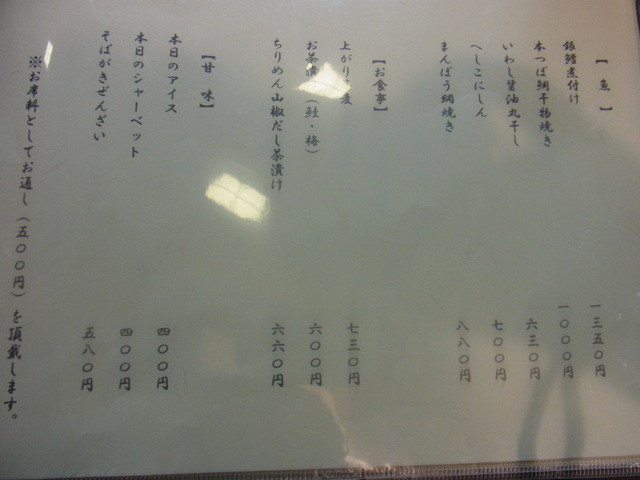 【魚】
銀鱈煮付け 一三五〇円
本つぼ鯛干物焼き 一〇〇〇円
いわし醤油丸干し 六三〇円
へしこにしん 七〇〇円
まんぼう網焼き 八八〇円
【お食事】
上がり麦 七三〇円
お茶漬（鮭・梅） 六〇〇円
ちりめん山椒だし茶漬け 六六〇円
【甘味】
本日のアイス 四〇〇円
本日のシャーベット 四〇〇円
そばがきぜんざい 五八〇円
※お席料としてお通し（五〇〇円）を頂戴します。